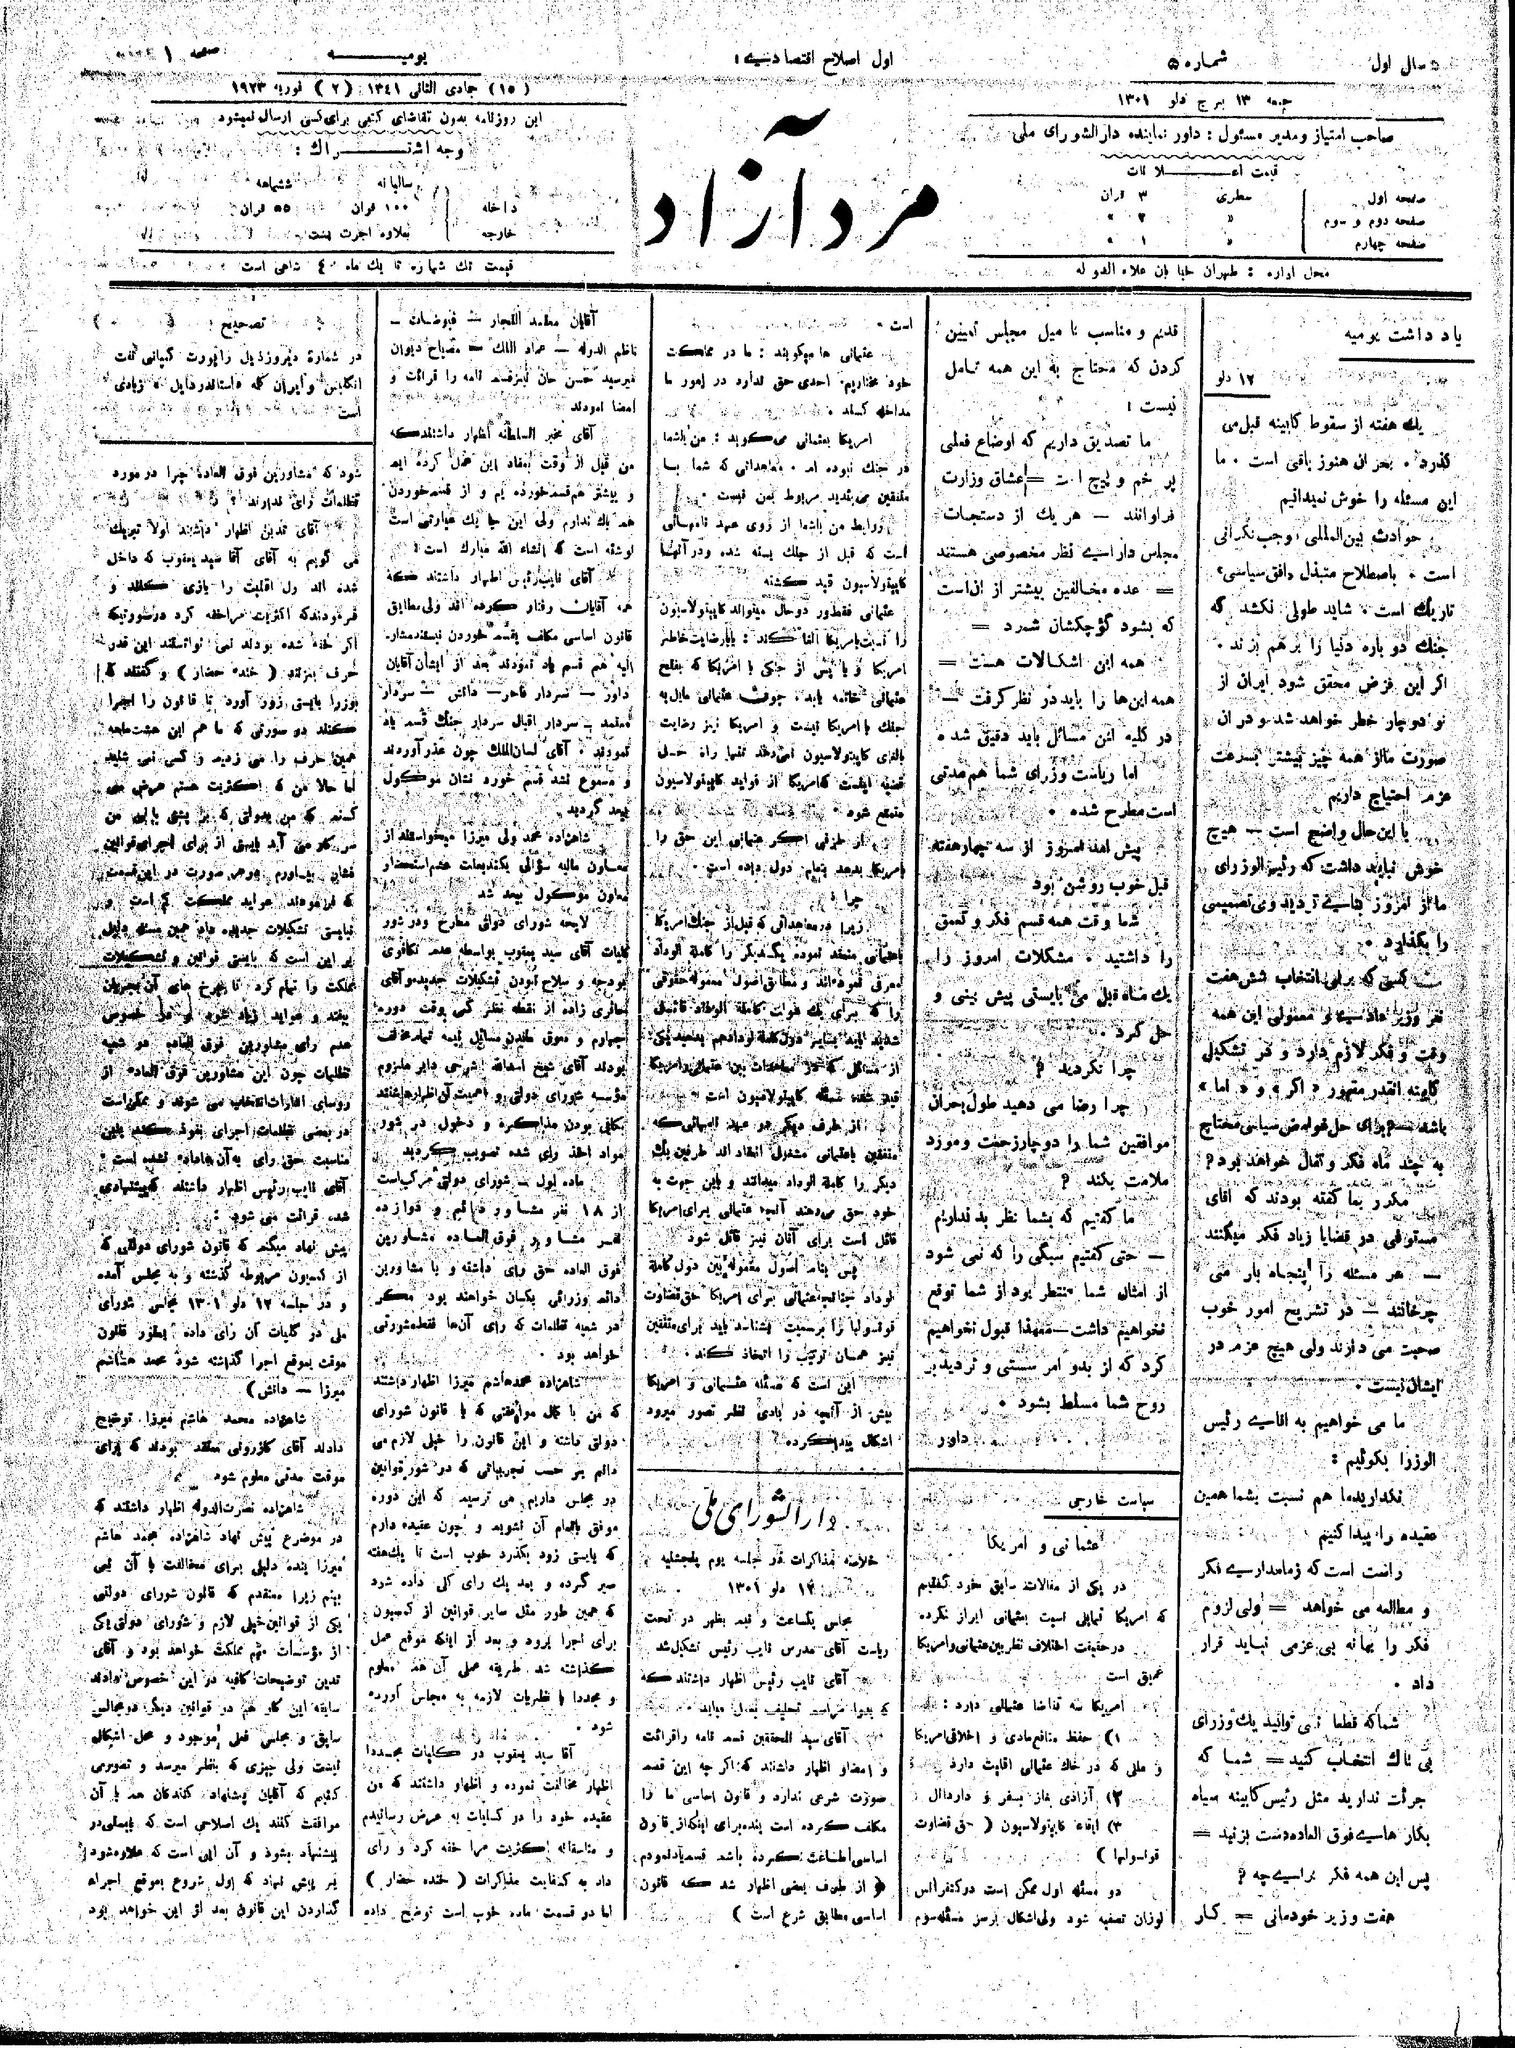 سال اول
شماره ۵
اول اصلاح اقتصادیست
یومیه
صفحه ۱
جمعه ۱۳ برج دلو ۱۳۰۱
(۱۵) جمادی الثانی ۱۳۴۱ (۲) فوریه ۱۹۲۳
مرد آزاد
صاحب امتیاز و مدیر مسئول : داور نماینده دارالشورای ملی
قیمت اعلانات
صفحه اول سطری ۳ قران
صفحه دوم و سوم » ۲ »
صفحه چهارم » ۱ »
محل اداره : طهران خیابان علاء الدوله
این روزنامه بدون تقاضای کتبی برای کسی ارسال نمیشود
وجه اشتراك :
سالیانه ششماهه
داخله ۱۰۰ قران ۵۵ قران
خارجه بعلاوه اجرت پست
قیمت تك شماره تا یك ماه ۴۰ شاهی است
یاد داشت یومیه
۱۲ دلو
یك هفته از سقوط كابینه قبل می
گذرد . بحران هنوز باقی است . ما
این مسئله را خوش نمیدانیم
حوادث بین‌المللی موجب نگرانی
است . باصطلاح مبتذل «افق سیاسی»
تاریك است . شاید طولی نکشد که
جنك دو باره دنیا را بر هم بزند .
اگر این فرض محقق شود ایران از
نو دوچار خطر خواهد شد و در ان
صورت ما از همه چیز بیشتر بسرعت
عزم احتیاج داریم
با این حال واضح است – هیچ
خوش نباید داشت که رئیس الوزرای
ما از امروز بنای تردید و بی تصمیمی
را بگذارد .
کسی که برای انتخاب شش هفت
نفر وزیر عادی و معمولی این همه
وقت و فکر لازم دارد و در تشکیل
کابینه انقدر مقهور « اگر » و « اما »
باشد – برای حل غوامض سیاسی محتاج
به چند ماه فکر و تأمل خواهد بود ؟
مکرر بما گفته بودند که اقای
مستوفی در قضایا زیاد فکر میکنند
– هر مسئله را پنجاه بار می
چرخانند – در تشریح امور خوب
صحبت می دارند ولی هیچ عزم در
ایشان نیست .
ما می خواهیم به اقای رئیس
الوزرا بگوئیم :
نگذارید ما هم نسبت بشما همین
عقیده را پیدا کنیم
راست است که زمامداری فکر
و مطالعه می خواهد = ولی لزوم
فکر را بهانه بی عزمی نباید قرار
داد .
شما که قطعا نمی توانید یك وزرای
بی باك انتخاب کنید = شما که
جرئت ندارید مثل رئیس کابینه سیاه
بکار های فوق العاده دست بزنید =
پس این همه فکر برای چه ؟
هفت وزیر خودمانی = کار
قدیم و مناسب تا میل مجلس تعیین
کردن که محتاج به این همه تأمل
نیست !
ما تصدیق داریم که اوضاع فعلی
پر خم و پیچ است = عشاق وزارت
فراوانند – هر یك از دستجات
مجلس دارای نظر مخصوصی هستند
= عده مخالفین بیشتر از ان است
که بشود کوچکشان شمرد =
همه این اشکالات هست =
همه این‌ها را باید در نظر گرفت –
در کلیه این مسائل باید دقیق شد .
اما ریاست وزرای شما هم مدتی
است مطرح شده .
پیش امد امروز از سه چهار هفته
قبل خوب روشن بود
شما وقت همه قسم فکر و تعمق
را داشتید . مشکلات امروز را
یك ماه قبل می بایستی پیش بینی و
حل کرد .
چرا نکردید ؟
چرا رضا می دهید طول بحران
موافقین شما را دوچار زحمت و مورد
ملامت بکند ؟
ما گفتیم که بشما نظر بد نداریم
– حتی گفتیم سبکی را که نمی شود
از امثال شما منتظر بود از شما توقع
نخواهیم داشت – معهذا قبول نخواهیم
کرد که از بدو امر سستی و تردید بر
روح شما مسلط بشود .
داور
سیاست خارجی
عثمانی و امریکا
در یکی از مقالات سابق خود گفتیم
که امریکا تمایلی نسبت بعثمانی ابراز نکرده
در حقیقت اختلاف نظر بین عثمانی و امریکا
عمیق است
امریکا سه تقاضا عثمانی دارد :
۱) حفظ منافع مادی و اخلاقی امریکا
و مللی که در خاك عثمانی اقلیت دارد
۲) آزادی بغاز بسفر و داردانل
۳) ابقاء کاپیتولاسیون ( حق قضاوت
قونسولها )
دو مسئله اول ممکن است در کنفرانس
لوزان تصفیه شود ولی اشکال بر سر مسئله سوم
است .
عثمانی ها میگویند : ما در مملکت
خود مختاریم. احدی حق ندارد در امور ما
مداخله کند .
امریکا بعثمانی می گوید : من باشما
در جنك نبوده ام . معاهداتی که شما با
متفقین می بندید مربوط بمن نیست .
روابط من باشما از روی عهد نامهائی
است که قبل از جنك بسته شده و در آنها
کاپیتولاسیون قید گشته
عثمانی فقط در دو حال میتواند کاپیتولاسیون
را نسبت بامریکا الغا کند : یا برضایت خاطر
امریکا و یا پس از جنگی با امریکا که بفتح
عثمانی خاتمه یابد . چون عثمانی مایل به
جنك با امریکا نیست و امریکا نیز رضایت
بالغای کاپیتولاسیون نمی دهد تنها راه حل
قضیه اینست که امریکا از فواید کاپیتولاسیون
متمتع شود .
از طرفی اگر عثمانی این حق را
بامریکا بدهد بتمام دول داده است .
چرا ؟
زیرا در معاهداتی که قبل از جنك امریکا
باعثمانی منعقد نموده یکدیگر را کاملة الوداد
معرفی نموده‌اند و مطابق اصول معموله حقوقی
از مسائل که در معاهدات بین عثمانی و امریکا
قید شده مسئله کاپیتولاسیون است
از طرف دیگر در عهد نامهائی که
متفقین باعثمانی مشغول انعقاد اند طرفین یك
دیگر را کاملة الوداد میدانند و باین جهت به
خود حق می‌دهند آنچه عثمانی برای امریکا
قائل است برای آنان نیز قائل شود
پس بنام اصول معموله بین دول کاملة
الوداد چنانچه عثمانی برای امریکا حق قضاوت
قونسولها را برسمیت بشناسد باید برای متفقین
نیز همان ترتیب را اتخاذ کند .
این است که مسئله عثمانی و امریکا
بیش از آنچه در بادی نظر تصور میرود
اشکال پیدا کرده
دارالشورای ملی
خلاصه مذاکرات در جلسه یوم پنجشنبه
۱۲ دلو ۱۳۰۱
مجلس یکساعت و نیم بظهر در تحت
ریاست آقای مدرس نایب رئیس تشکیل شد
آقای نایب رئیس اظهار داشتند که
که بدوا مراسم تحلیف بعمل میاید .
آقای سید المحققین قسم نامه را قرائت
و امضاء و اظهار داشتند که اگر چه این قسم
صورت شرعی ندارد و قانون اساسی ما را
مکلف کرده است بنده برای اینکه از قانون
اساسی اطاعت کرده باشم قسم یاد نمودم
( از طرف بعضی اظهار شد که قانون
اساسی مطابق شرع است )
آقایان معتمد التجار – فیوضات –
ناظم الدوله – عماد الملك – مصباح دیوان
میرسید حسن خان نیز قسم نامه را قرائت و
امضا نمودند
آقای مخبر السلطنه اظهار داشتند که
من قبل از وقت بمفاد این عمل کرده ایم
و بیشتر هم قسم خورده یم و از قسم خوردن
هم باك ندارم ولی این جا یك عبارتی است
نوشته است که انشاء الله مبارك است !
آقای نایب رئیس اظهار داشتند که
همه آقایان رفتار کرده اند ولی مطابق
قانون اساسی مکلف بقسم خوردن نیستند مشار-
الیه هم قسم یاد نمودند بعد از ایشان آقایان
داور – سردار فاخر – دانش – سردار
معتمد – سردار اقبال سردار جنك قسم یاد
نمودند . آقای لسان الملك چون عذر آوردند
و مسموع نشد قسم خورد نشان موکول
ببعد گردید
شاهزاده محمد ولی میرزا میخواستند از
معاون مالیه سؤالی بکنند بعلت عدم استحضار
معاون موکول ببعد شد
لایحه شورای دولتی مطرح و در شور
کلیات آقای سید یعقوب بواسطه عدم تکافوی
بودجه و صلاح نبودن تشکیلات جدید و آقای
زاده از نقطه نظر کمی وقت دوره
چهارم و معوق ماندن مسائل نیمه تمام مخالف
بودند آقای شیخ اسدالله شرحی دایر بلزوم
مؤسسه شورای دولتی و اهمیت آن اظهار داشتند
بکافی بودن مذاکره و دخول در شور
مواد اخذ رای شده تصویب گردید
ماده اول – شورای دولتی مرکب است
از ۱۸ نفر مشاور دائم و دوازده
نفر مشاور فوق العاده مشاورین
فوق العاده حق رای داشته و با مشاورین
دائم وزرائی یکسان خواهند بود مگر
در شعبه تظلمات که رای آن‌ها فقط مشورتی
خواهد بود .
شاهزاده محمد هاشم میرزا اظهار داشتند
که من با کمال موافقتی که با قانون شورای
دولتی داشته و این قانون را خیلی لازم می
دانم بر حسب تجربیاتی که در شور قوانین
در مجلس داریم می ترسید که این دوره
موفق باتمام آن نشوید و چون عقیده دارم
که بایستی زود بگذرد خوب است تا یك هفته
صبر کرده و بعد یك رای کلی داده شود
که همین طور مثل سایر قوانین از کمسیون
برای اجرا برود و بعد از اینکه موقع عمل
گذاشته شد طریقه عملی آن هم معلوم
و مجددا با نظریات لازمه به مجلس آورده
شود .
آقا سید یعقوب در کلیات مجددا
اظهار مخالفت نموده و اظهار داشتند که من
عقیده خود را در کلیات به عرض رسانیدم
و متاسفانه اکثریت مرا خفه کرد و رأی
داد به کفایت مذاکرات ( خنده حضار )
اما در قسمت ماده خوب است توضیح داده
تصحیح
در شمارهٔ دیروز ذیل راپورت کمپانی نفت
انگلیس و ایران کلمه «استاندرداویل» زیادی
است
شود که «مشاورین فوق العاده» چرا در مورد
تظلمات رأی ندارند ؟
آقای تدین اظهار داشتند اولا تبریك
می گویم به آقای آقا سید یعقوب که داخل
شده اند رل اقلیت را بازی کنند و
فرمودند که اکثریت مرا خفه کرد در صورتیکه
اگر خفه شده بودند نمی توانستند این قدر
حرف بزنند ( خنده حضار ) و گفتند که
بوزرا بایستی زور آورد تا قانون را اجرا
کنند در صورتی که ما هم این هشت ماهه
همین حرف را می زدیم و کسی نمی شنید
اما حالا من که اکثریت هستم عرض می
کنم که من بدولتی که بر پشتی بانی من
سر کار می آید بایستی از برای اجرای قوانین
فشار بیاورم بهر صورت در این قسمت
که فرمودند عواید مملکت کم است و
نبایستی تشکیلات جدیده داد همین مسئله دلیل
بر این است که بایستی قوانین و تشکیلات
مملکت را تمام کرد تا چرخ های آن بجریان
بیفتد و عواید زیاد شود و در خصوص
عدم رای مشاورین فوق العاده در شعبه
تظلمات چون این مشاورین فوق العاده از
رؤسای ادارات انتخاب می شوند و ممکن است
در بعضی تظلمات اجرای نفوذ کنند باین
مناسبت حق رای به آن ها داده نشده است
آقای نایب رئیس اظهار داشتند که پیشنهادی
شده قرائت می شود :
پیش نهاد میکنم که قانون شورای دولتی که
از کمسیون مربوطه گذشته و به مجلس آمده
و در جلسه ۱۲ دلو ۱۳۰۱ مجلس شورای
ملی در کلیات آن رای داده بطور قانون
موقت بموقع اجرا گذاشته شود محمد هاشم
میرزا – دانش )
شاهزاده محمد هاشم میرزا توضیح
دادند آقای کازرونی معتقد بودند که برای
موقت مدتی معلوم شود
شاهزاده نصرت‌الدوله اظهار داشتند که
در موضوع پیش نهاد شاهزاده محمد هاشم
میرزا بنده دلیلی برای مخالفت با آن نمی
بینم زیرا معتقدم که قانون شورای دولتی
یکی از قوانین خیلی لازم و شورای دولتی یکی
از مؤسسات مهم مملکت خواهد بود و آقای
تدین توضیحات کافیه در این خصوص دادند
سابقه این کار هم در قوانین دیگر در مجالس
سابق و مجلس فعلی موجود و محل اشکال
نیست ولی چیزی که بنظر میرسد و تصور می
کنیم که آقایان پیشنهاد کنندگان هم با آن
موافقت کنند یك اصلاحی است که بایستی در
پیشنهاد بشود و آن این است که علاوه شود
بر پیش نهاد که اول شروع بموقع اجراء
گذاردن این قانون بعد از این خواهد بود